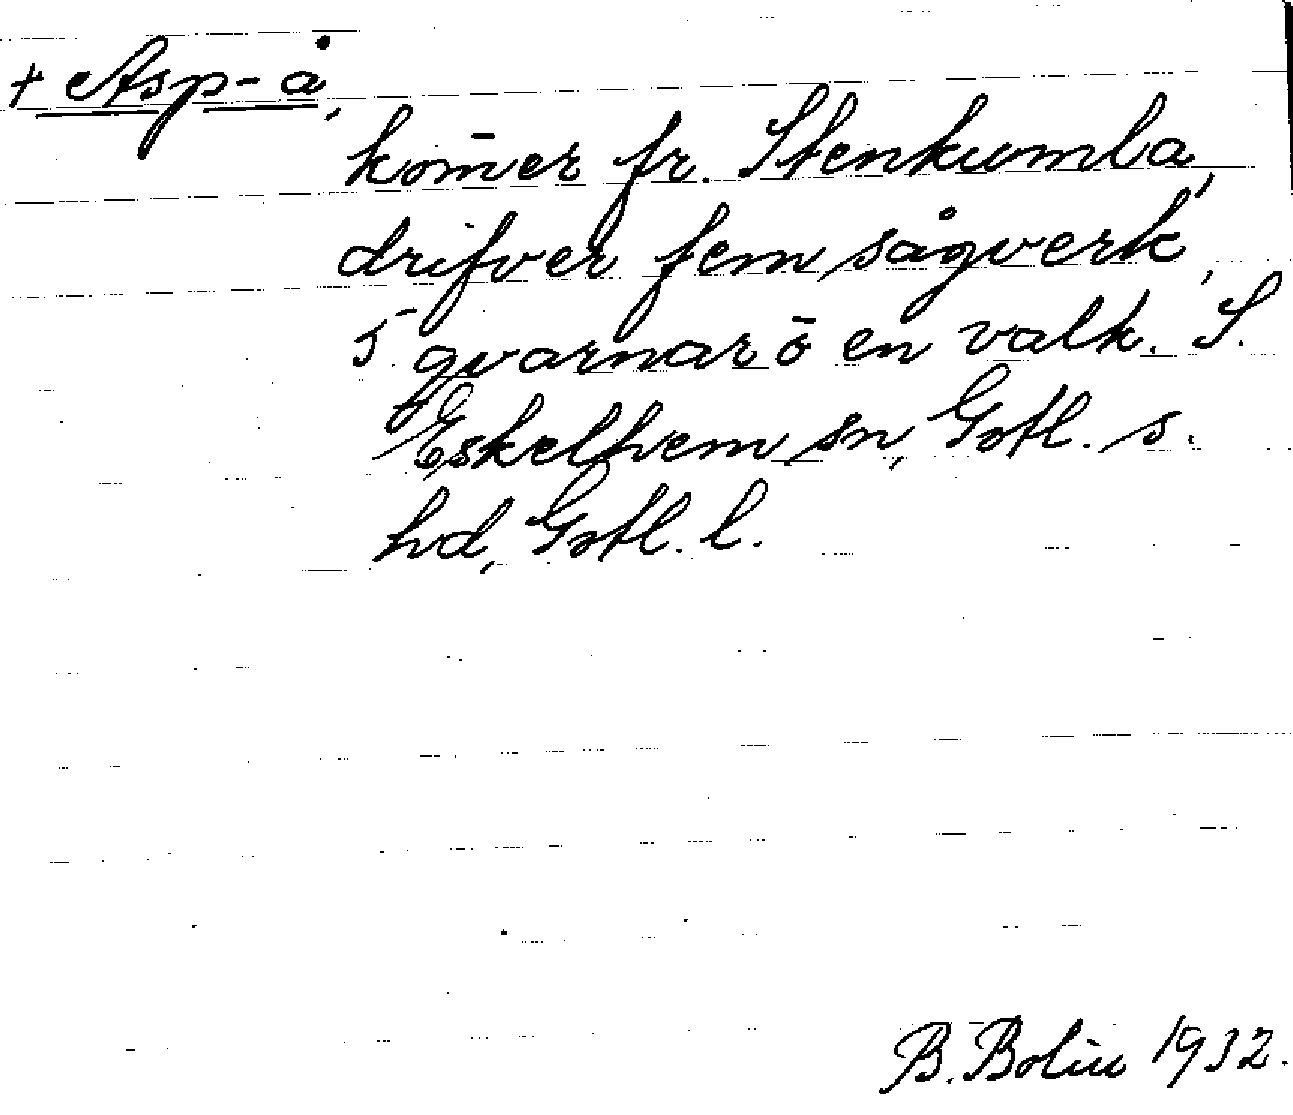 + Asp-å,
kom̄er fr. Stenkumla,
drifver fem sågverk,
5 qvarnar ō en valk. S.
Eskelhem sn, Gotl. s.
hd, Gotl. l.
B. Bolin 1932.